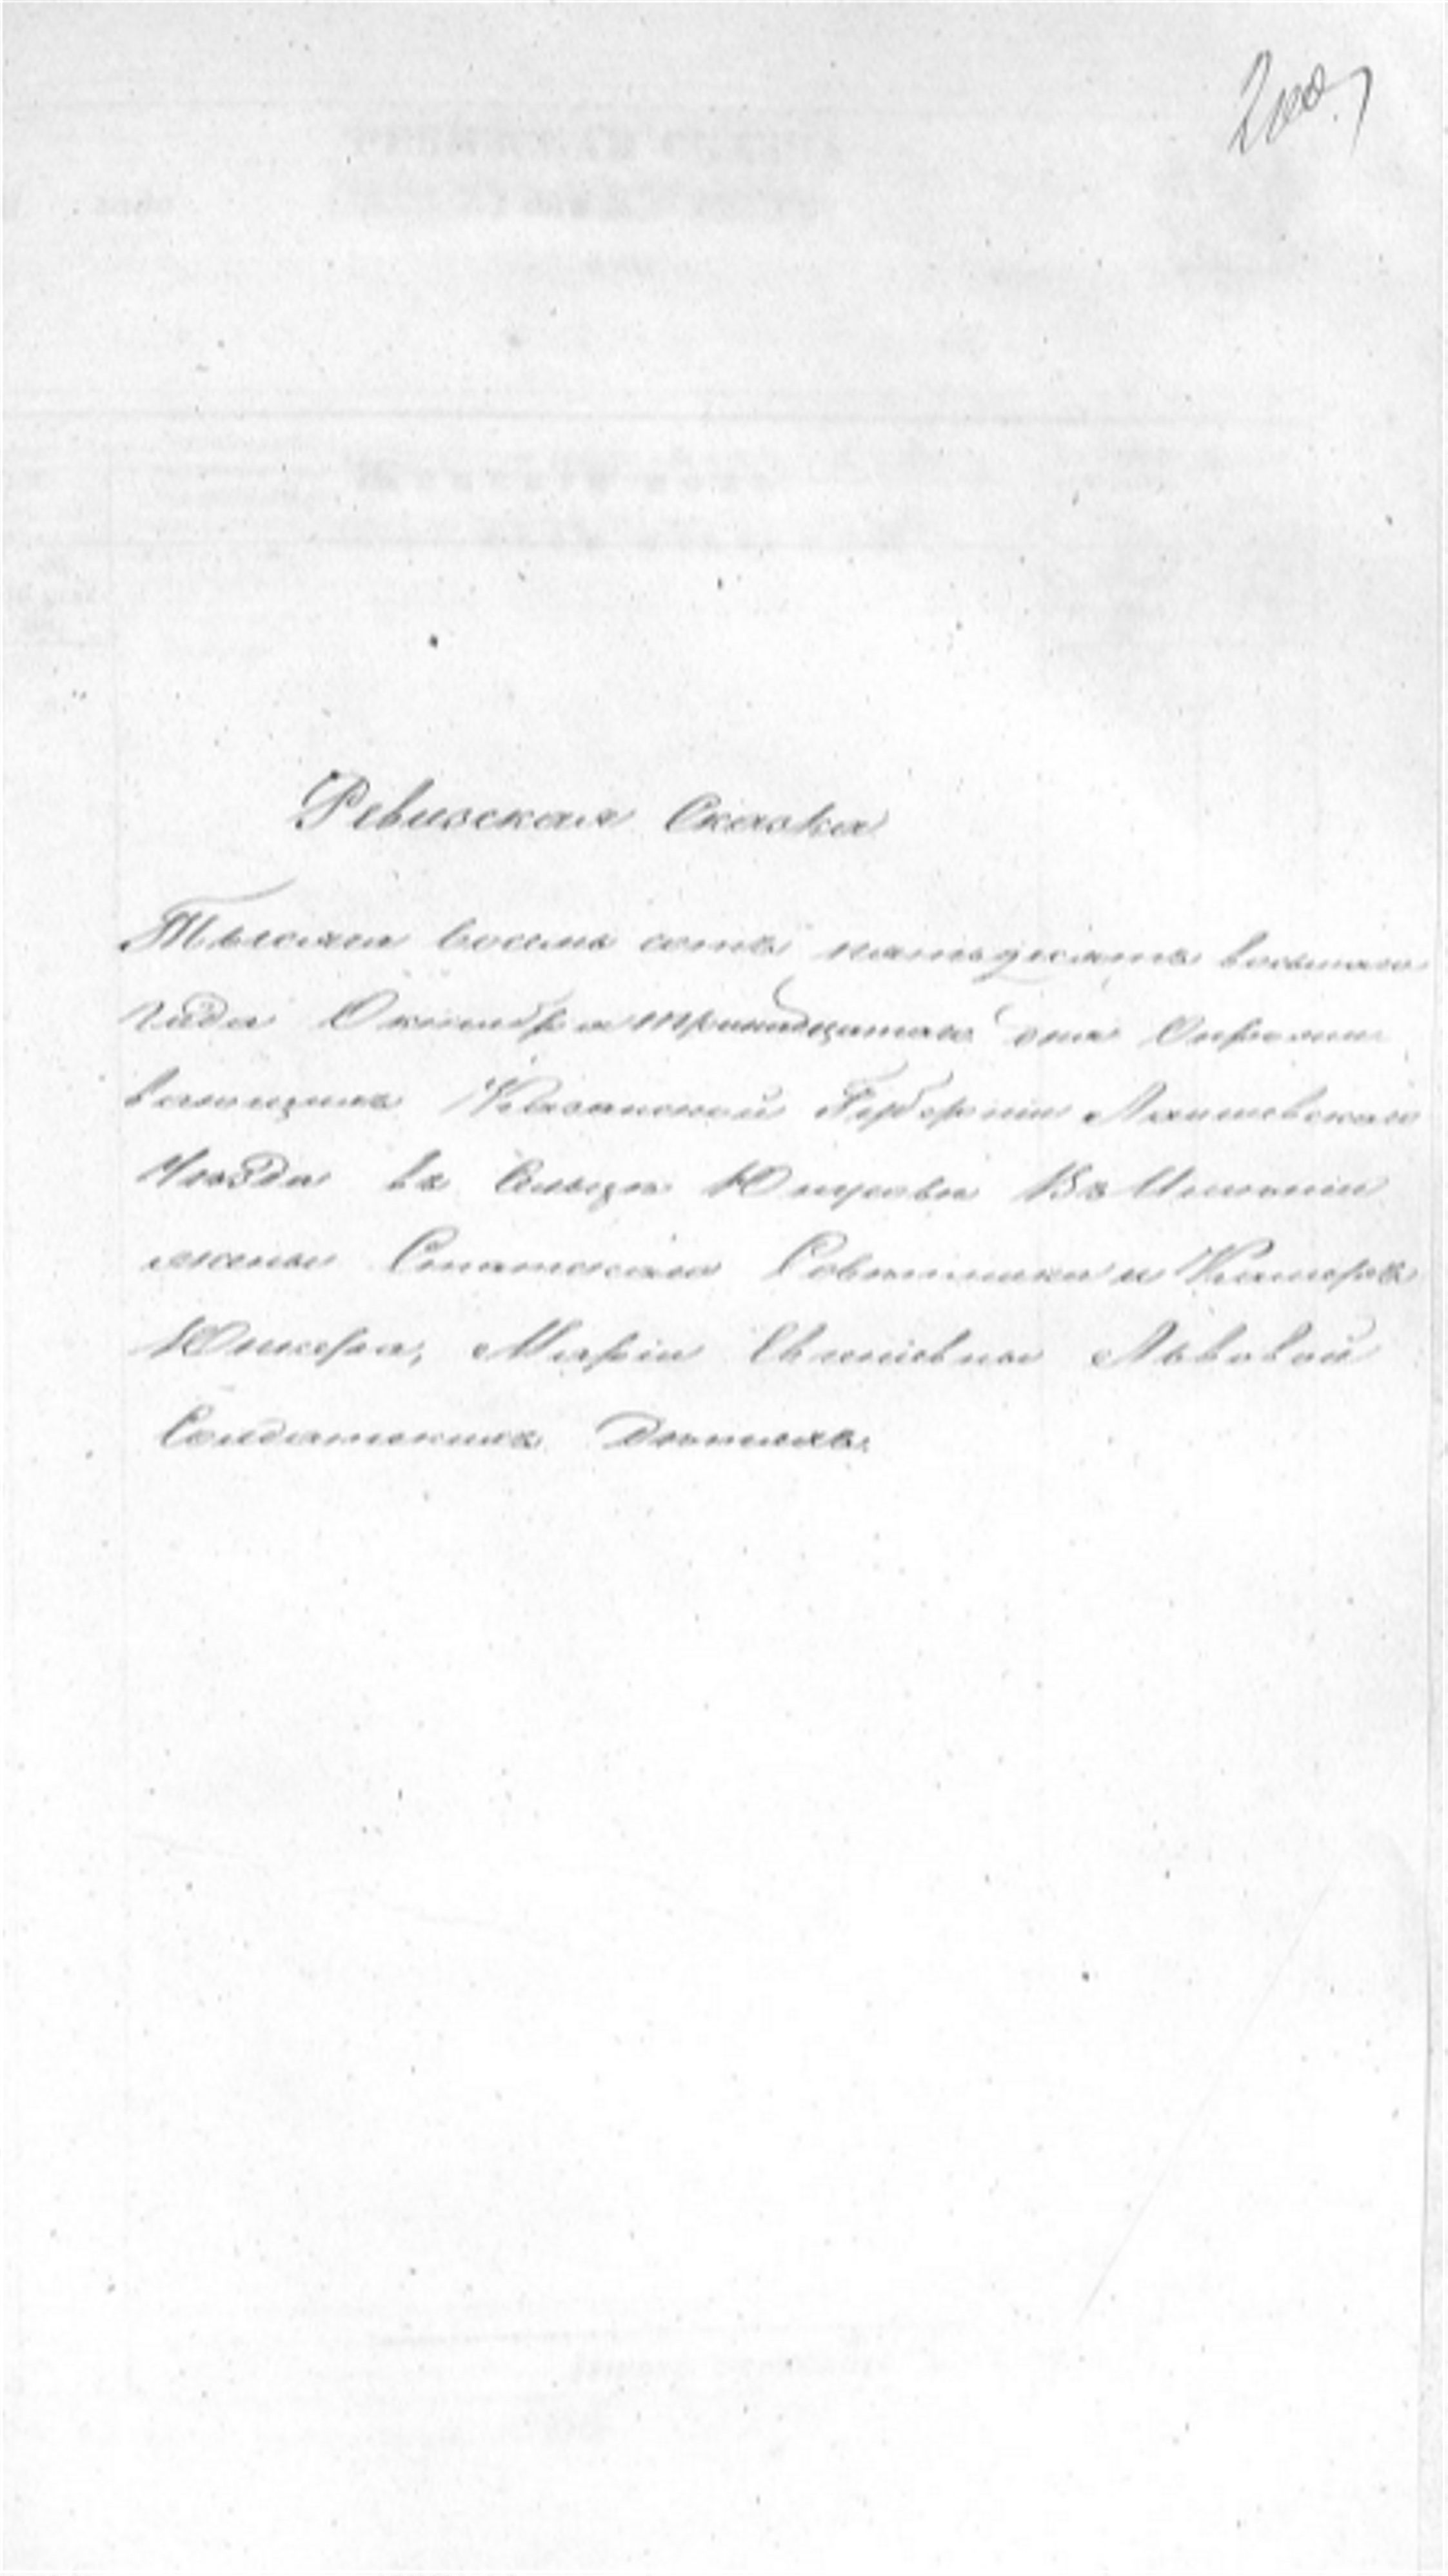 Ревизская Сказка
Тысяча восемь сотъ пятьдесятъ восьмаго
года Октября тринадцатаго дня О
Казанской Губерніи Лаишевскаго
Уѣзда въ Сельцѣ Юнусовѣ Въ Имѣніи
жены Статскаго Совѣтника и Камеръ
Юнкера, Маріи Евгеніевны Львовой
Солдатскихъ Дѣтяхъ.